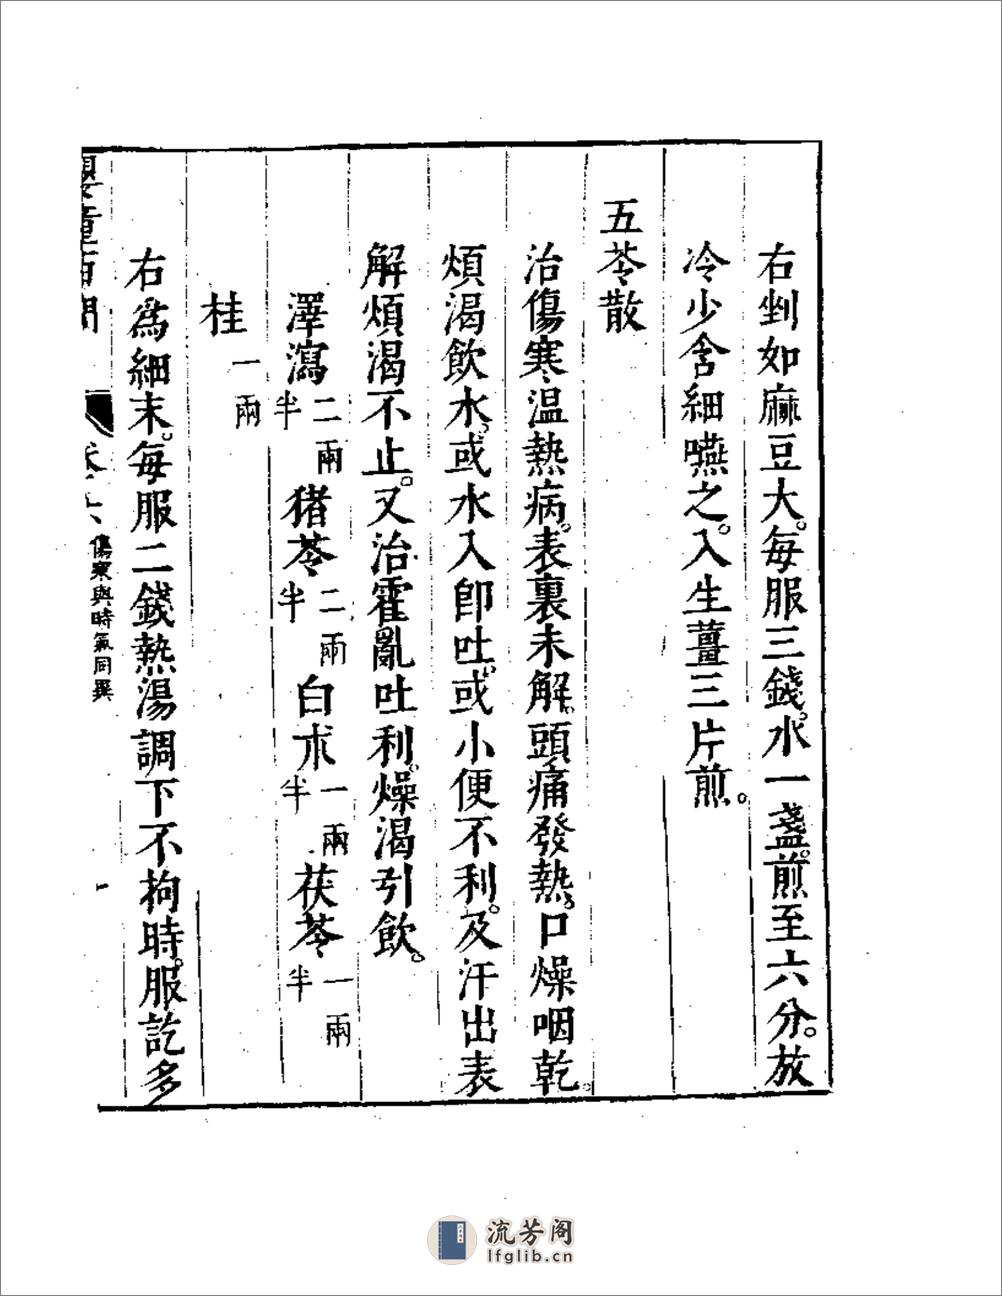 右剉如麻豆大。每服三錢。水一盞。煎至六分。放
冷少含細嚥之。入生薑三片煎。
五苓散
治傷寒温熱病。表裏未解。頭痛發熱。口燥咽乾。
煩渴飲水。或水入卽吐。或小便不利。及汗出表
解煩渴不止。又治霍亂吐利。燥渴引飲。
澤瀉二兩半 猪苓二兩半 白朮一兩半 茯苓一兩半
桂一兩
右爲細末。每服二錢熱湯調下不拘時。服訖多
嬰童百問 傷寒與時氣同異
流芳阁
lfglib.cn